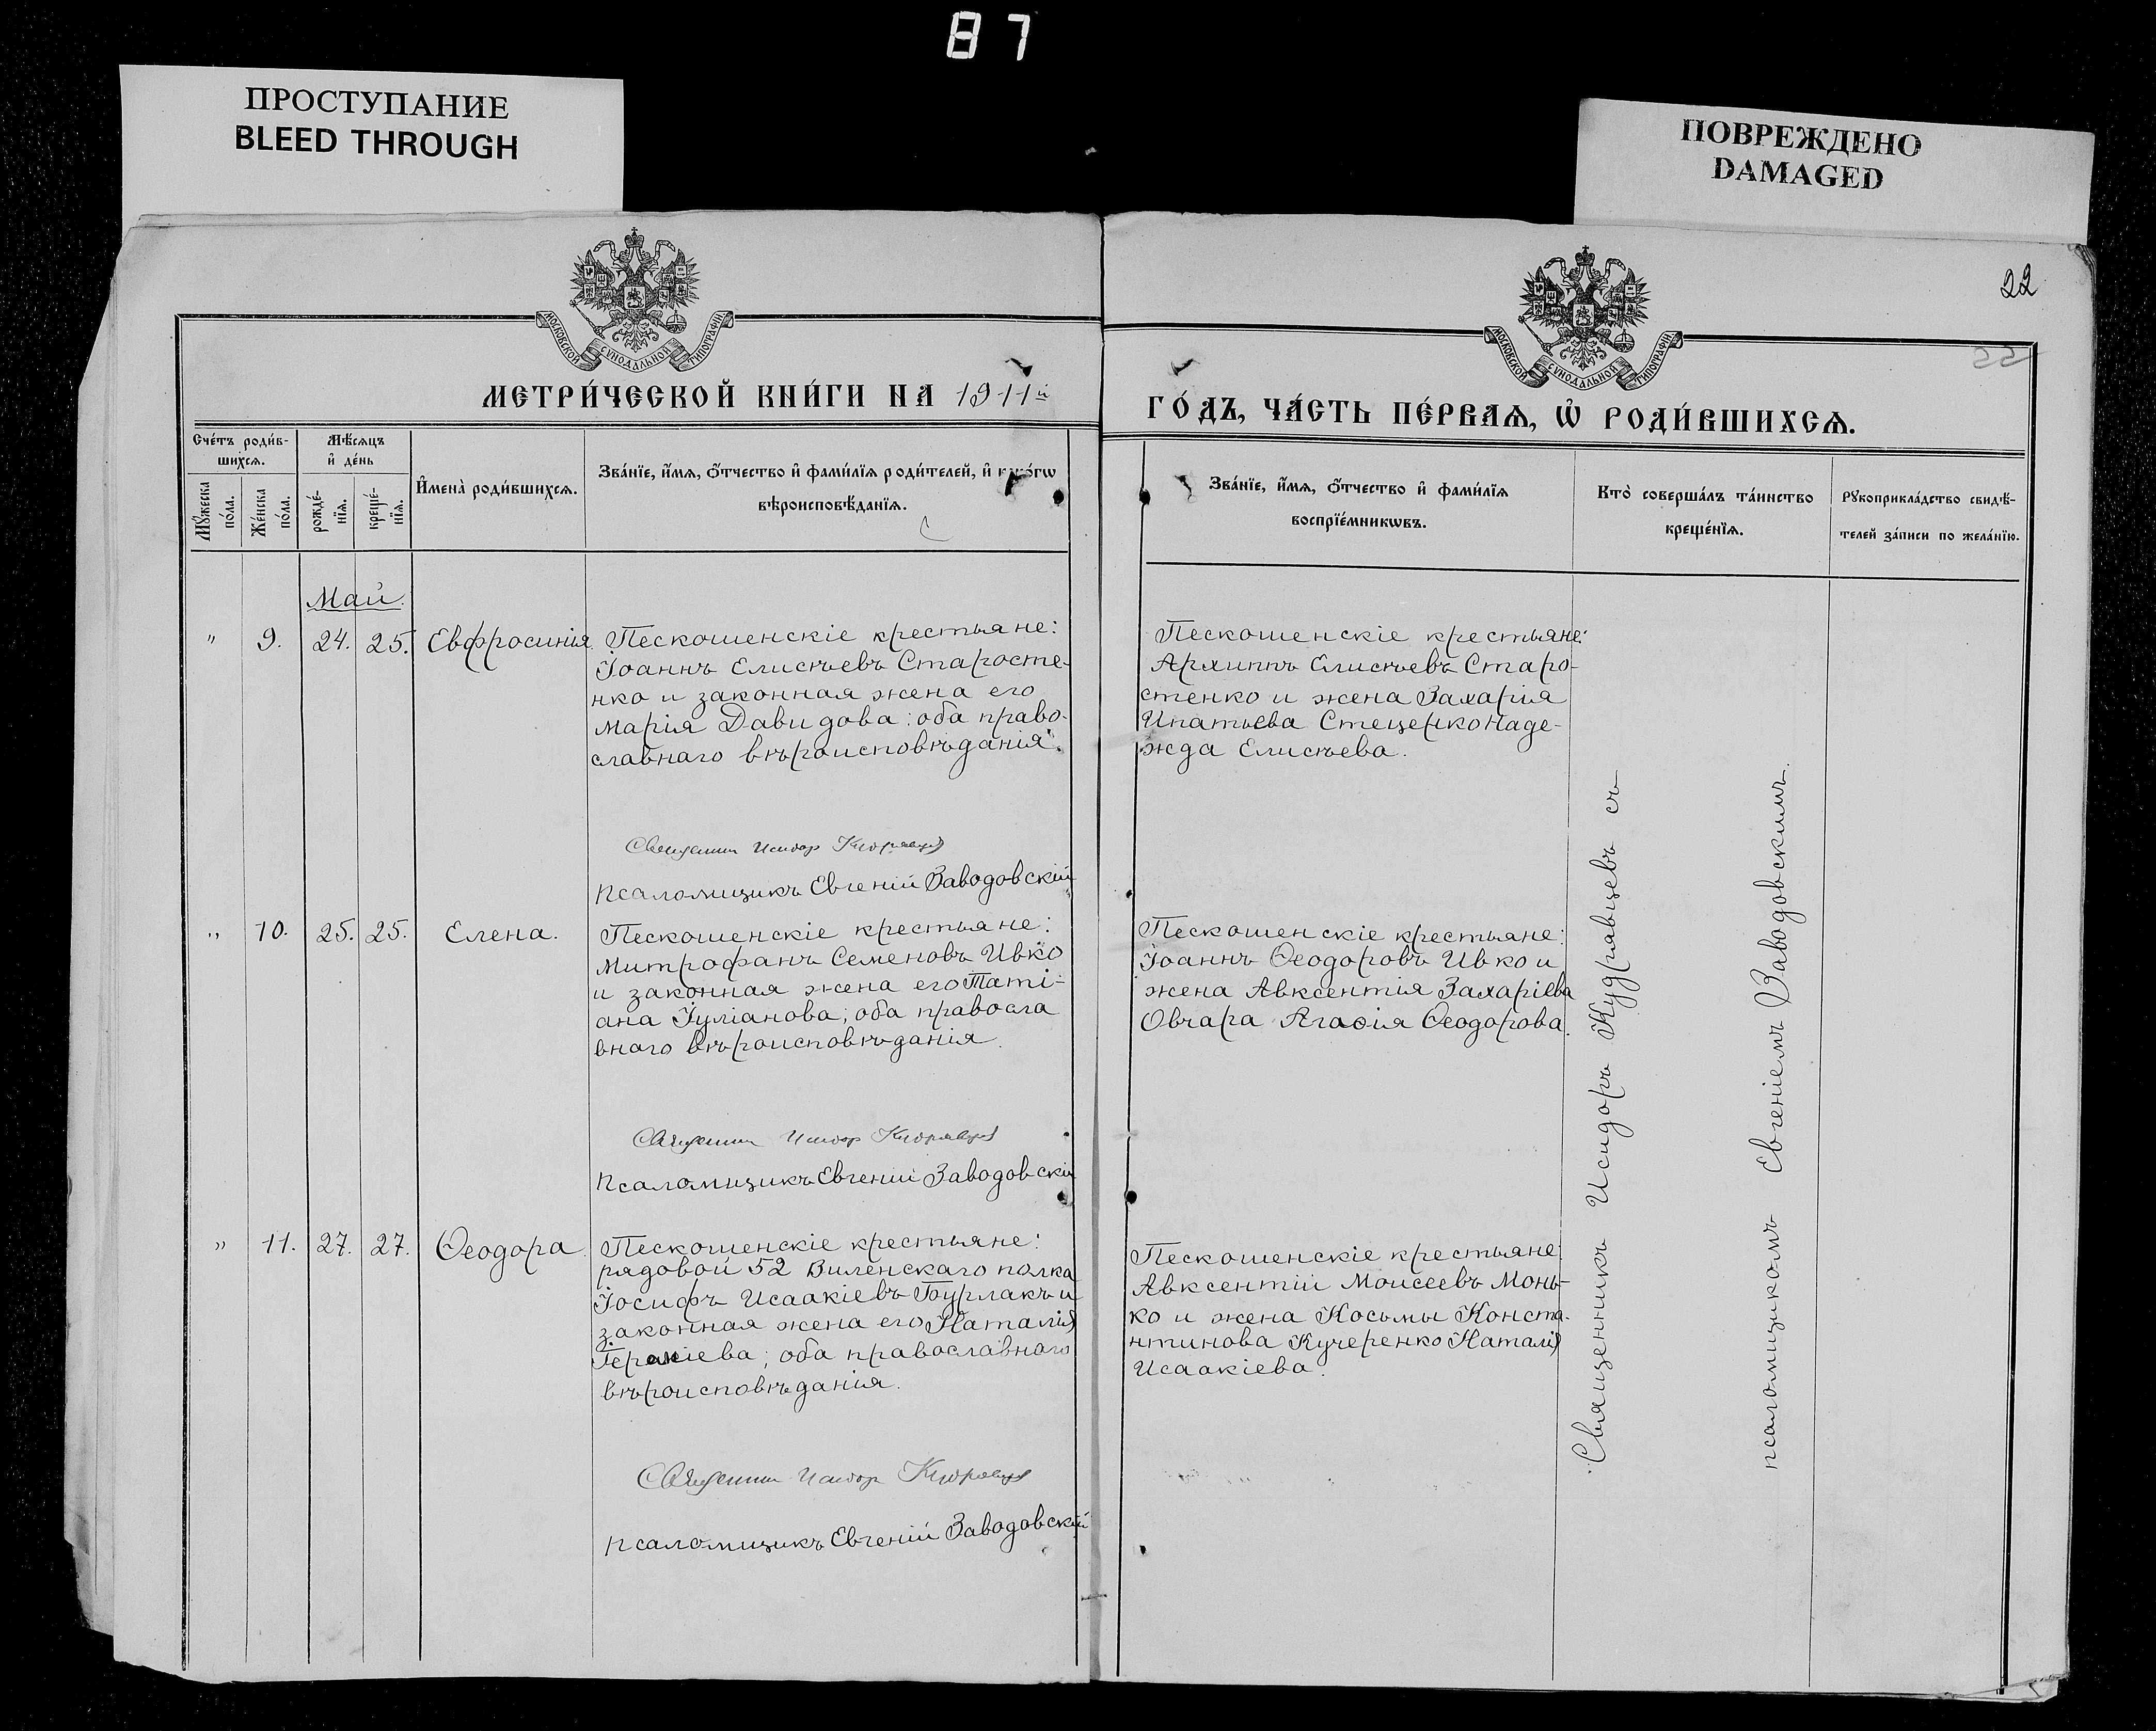 87
ПРОСТУПАНИЕ
BLEED THROUGH
ПОВРЕЖДЕНО
DAMAGED
22
22
МОСКОВСКОЙ СѴНОДАЛЬНОЙ ТИПОГРАФІИ
МОСКОВСКОЙ СѴНОДАЛЬНОЙ ТИПОГРАФІИ
МЕТРИ́ЧЕСКОЙ КНИ́ГИ НА 1911й
ГО́ДЪ, ЧА́СТЬ ПЕ́РВАѦ, Ѡ҆ РОДИ́ВШИХСѦ.
Сче́тъ роди́в-
шихсѧ.
Мꙋ́жеска
по́ла.
Же́нска
по́ла.
Мѣ́сѧцъ
и҆ де́нь
рожде́-
нїѧ.
креще́-
нїѧ.
И҆мена̀ роди́вшихсѧ.
Зва́нїе, и҆́мѧ, ѻ҆́тчество и҆ фами́лїѧ роди́телей, и҆ како́гѡ
вѣроисповѣ́данїѧ.
Зва́нїе, и҆́мѧ, ѻ҆́тчество и҆ фами́лїѧ
воспрїе́мникѡвъ.
Кто̀ соверша́лъ та́инство
креще́нїѧ.
Рꙋкоприкла́дство свидѣ́-
телей за́писи по жела́нїю.
Май.
" 9. 24. 25. Евфросинія
Пескошенскіе крестьяне:
Іоаннъ Елисѣевъ Старосте-
нко и законная жена его
Марія Давидова: оба право-
славнаго вѣроисповѣданія.
Священник Исидор Кудрявцев
Псаломщикъ Евгеній Заводовскій
Пескошенскіе крестьяне:
Архиппъ Елисѣевъ Старо-
стенко и жена Захарія
Ипатьева Стеценко Наде-
жда Елисѣева.
" 10. 25. 25. Елена.
Пескошенскіе крестьяне:
Митрофанъ Семеновъ Ивко
и законная жена его Таті-
ана Іуліанова; оба правосла
внаго вѣроисповѣданія.
Священник Исидор Кудрявцев
Псаломщикъ Евгеній Заводовскій
Пескошенскіе крестьяне:
Іоаннъ Ѳеодоровъ Ивко и
жена Авксентія Захаріева
Овчара Агаѳія Ѳеодорова.
" 11. 27. 27. Ѳеодора.
Пескошенскіе крестьяне:
рядовой 52 Виленскаго полка
Іосифъ Исаакіевъ Бурлакъ и
законная жена его Наталія
оба православнаго
вѣроисповѣданія.
Священник Исидор Кудрявцев
Псаломщикъ Евгеній Заводовскій
Пескошенскіе крестьяне:
Авксентій Моисеевъ Монь-
ко и жена Косьмы Конста-
нтинова Кучеренко Наталія
Исаакіева.
Священникъ Исидоръ Кудрявцевъ съ
псаломщикомъ Евгеніемъ Заводовскимъ.